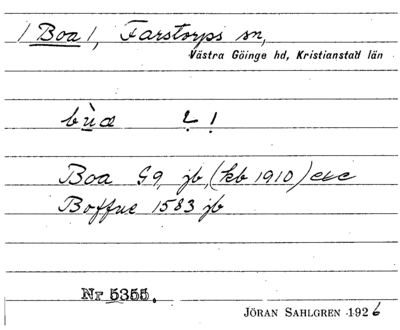 / Boa /, Farstorps sn,
Västra Göinge hd, Kristianstad län
bùa 2 !
Boa G9, jb, (kb 1910) etc
Boffue 1583 jb
Nr 5355.
JÖRAN SAHLGREN 1926